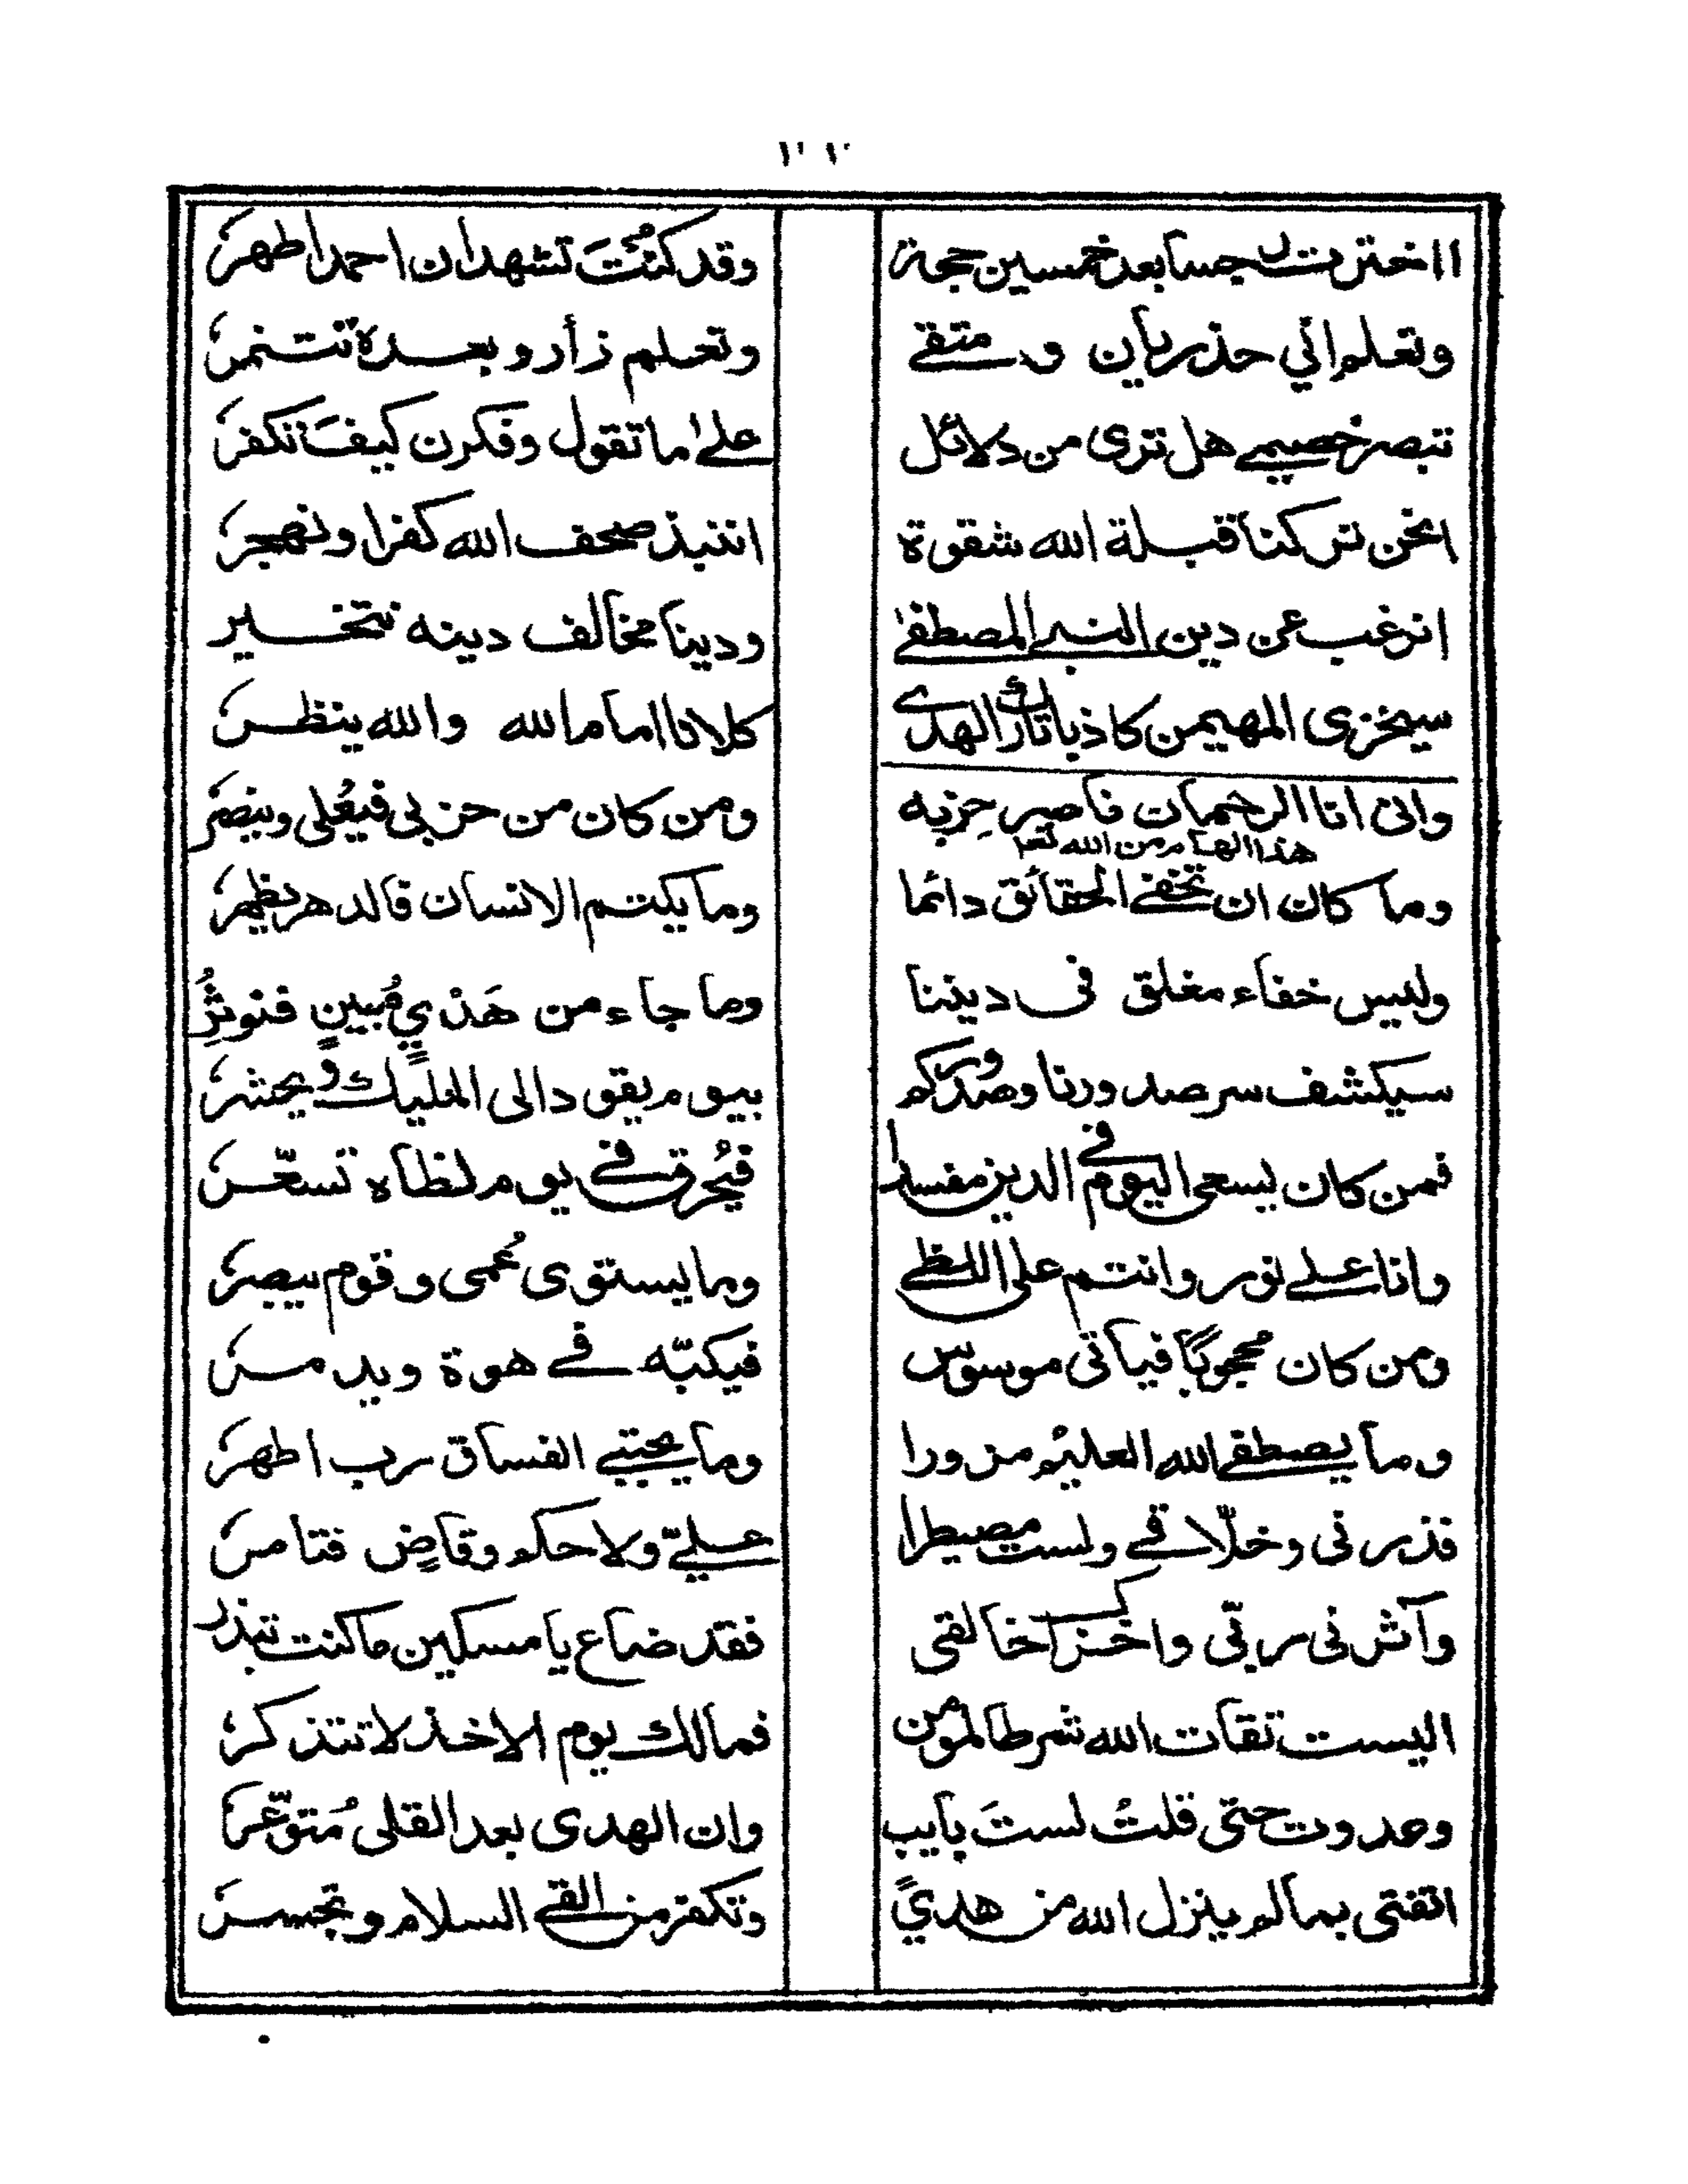 ااخترت رجسا بعد خمسين حجة وقد كنت تشهد ان احمد اطهر
وتعلم اني حذريان و متقى وتعلم زأر و بعده تتنمر
تبصر خصيمي هل ترى من دلائل على ما تقول وفكرن كيف نكفر
انحن تركنا قبلة الله شقوة اننبذ صحف الله كفرا ونهجر
انرغب عن دين النبي المصطفى ودينا مخالف دينه نتخير
سيخزى المهيمن كاذبا تارك الهدى كلانا امام الله والله ينظر
وانى انا الرحمان ناصر حزبه ومن كان من حزبى فيعلى وينصر
هذا الهام من الله تعالى
وما كان ان تخفى الحقائق دائما وما يكتم الانسان فالدهر يظهر
وليس خفاء مغلق فى ديننا وما جاء من هَدْيٍ مُبينٍ فنوثر
سيكشف سر صدورنا وصدوركم بيوم يقود الى المليك ويحشر
فمن كان يسعى اليوم فى الدين مفسدا فيُحرق فى يوم لظاه تسعّر
وانا على نور وانتم على اللظى وما يستوى عُمى وقوم يبصر
ومن كان محجوبًا فيأتى موسوس فيكبّه فى هوة ويدمر
وما يصطفى الله العليم مزورا وما يجتبى الفساق رب اطهر
فذرنى وخلّاقى ولست مصيطرا علىّ ولا حكم وقاضٍ فتأمر
وآثرنى ربّى واخزا خالقى فقد ضاع يا مسكين ما كنت تبذر
اليست تقات الله شرطا لمؤمن فما لك يوم الاخذ لا تتذكر
وعدوت حتى قلتُ لستَ بايب وان الهدى بعد القلى مُتوعّر
اتفتى بما لم ينزل الله من هدىً وتكفر من القى السلام وتجسر